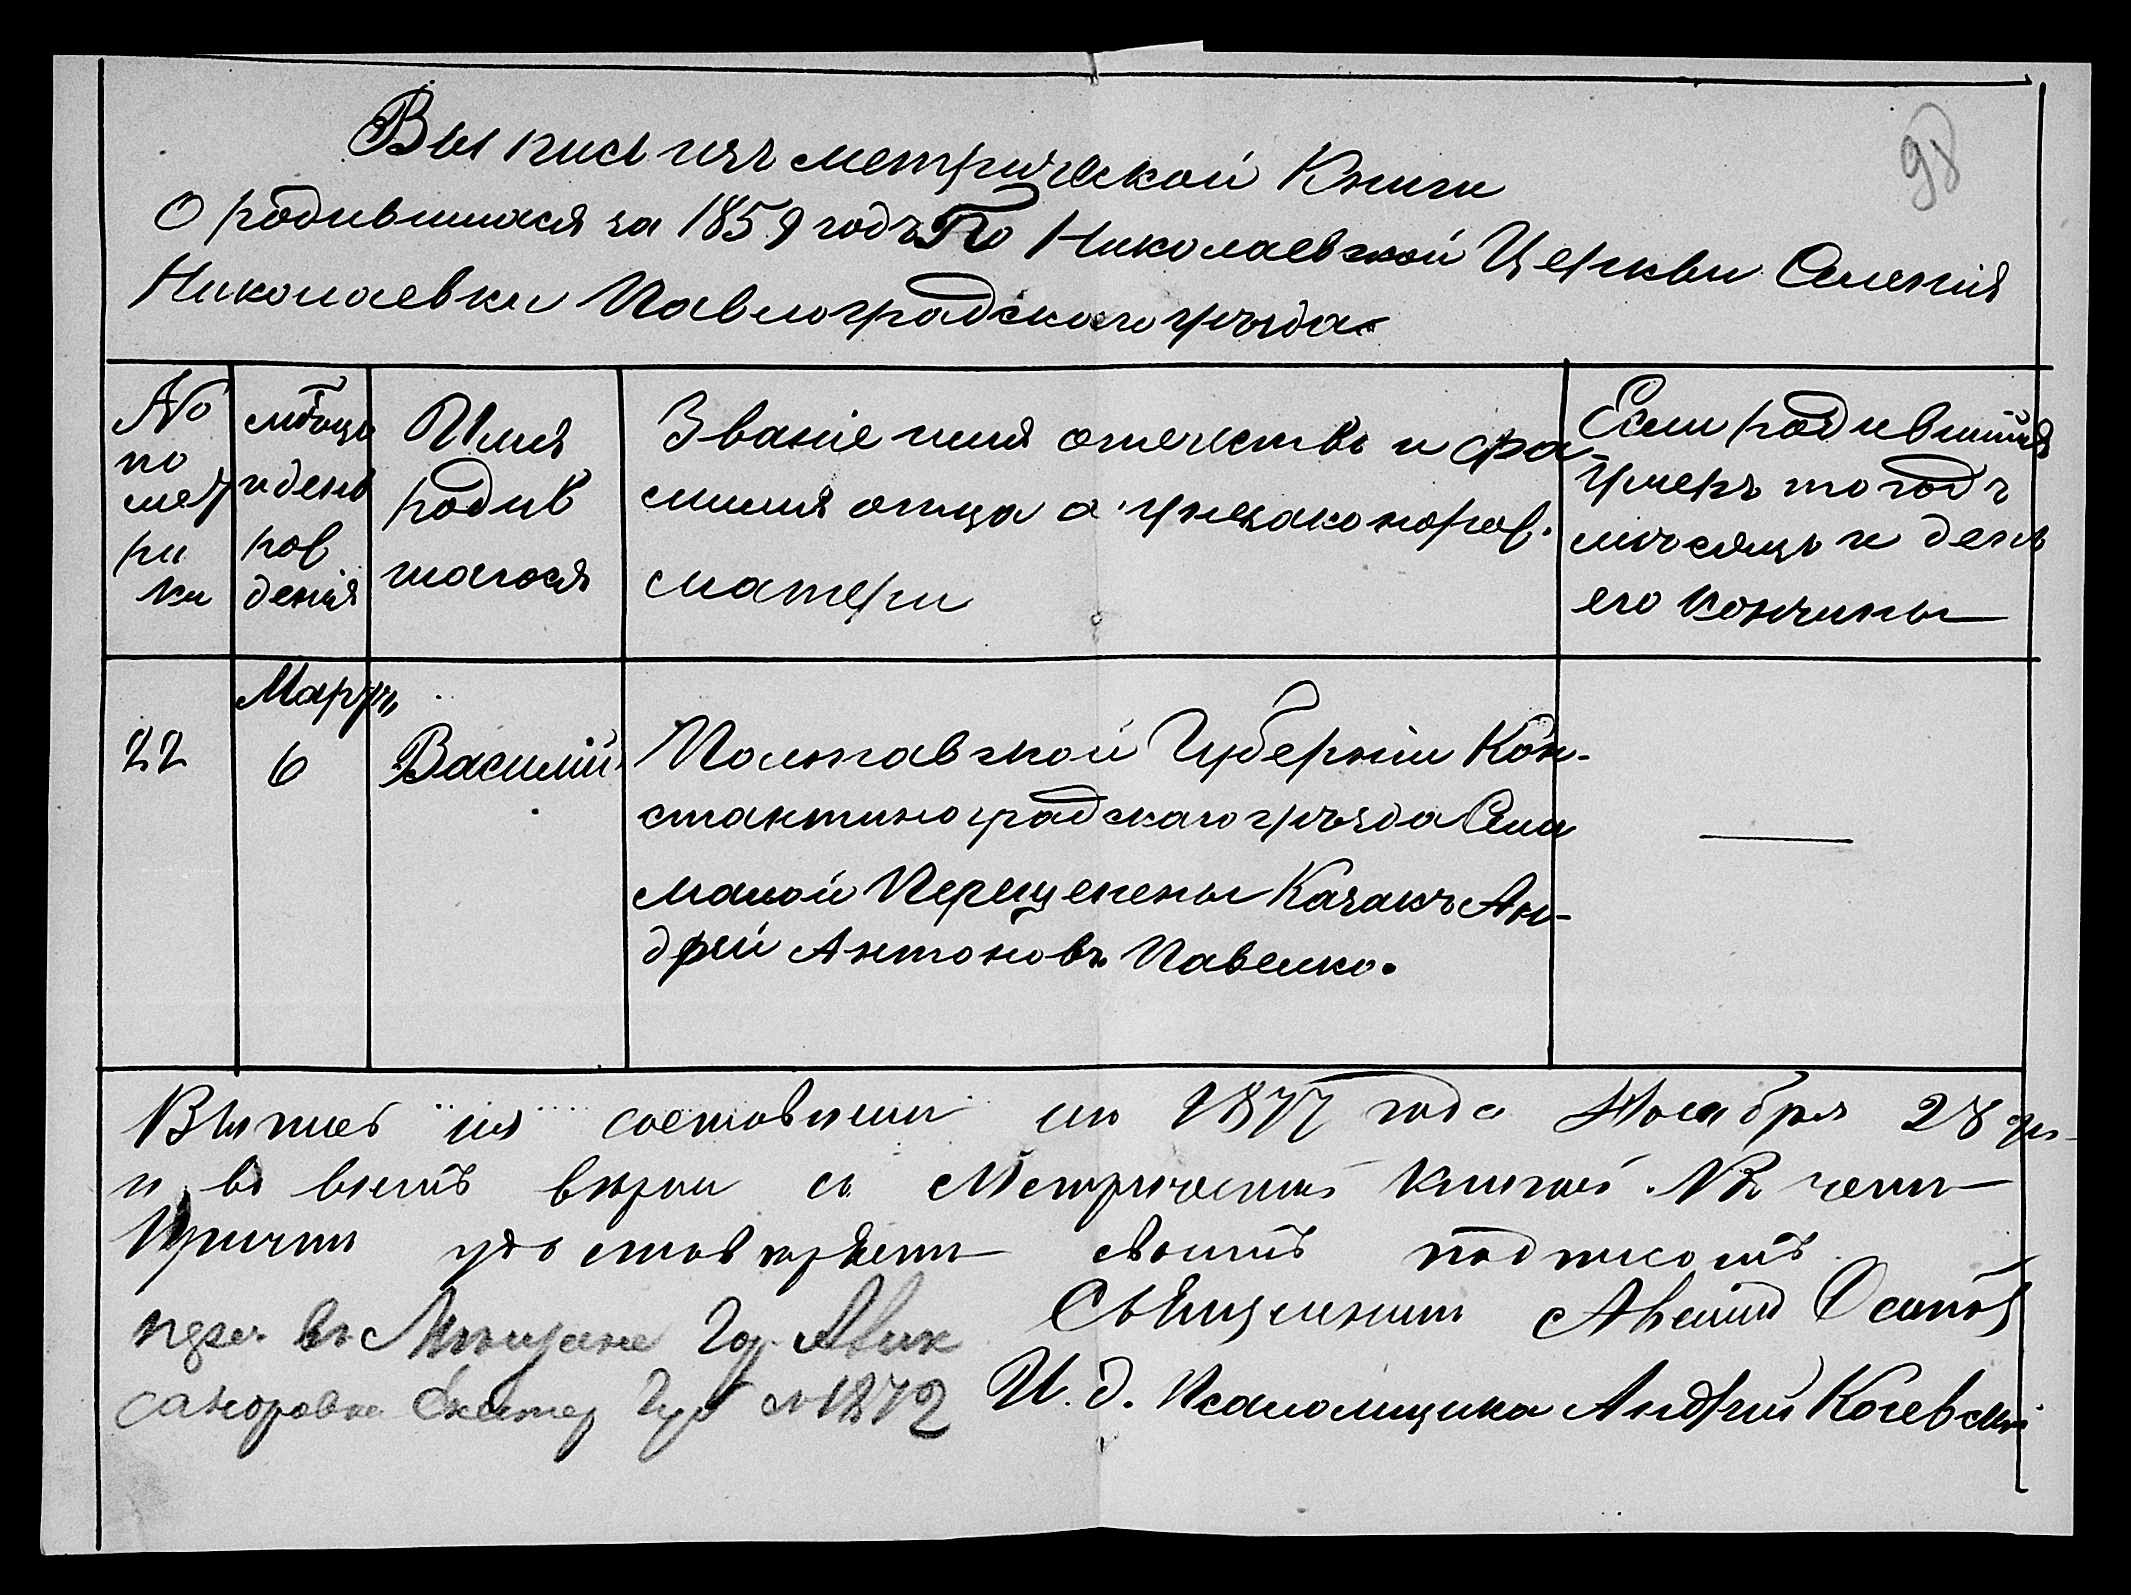 98
Выпись изъ метрической Книги
О родившихся за 1859 годъ По Николаевской Церкви Селенія
Николаевки Павлоградскаго уѣзда
№ по метрики
мѣсяцъ и день рожденія
Имя родившагося
Званіе имя отечество и фамилия отца а у незаконорож. матери
Если родившійся умеръ то годъ мѣсяцъ и день его кончины
22
Мартъ
6
Василій
Полтавской Губерніи Кон-
стантиноградскаго уѣзда Села
Малой Перещепены Казакъ Ан-
дрей Антоновъ Павелко.
Выпись сія составлена 1877 года Ноября 28 дня
и во всемъ вѣрна съ Метрической Книгой въ чемъ
Причтъ удостовѣряетъ своимъ подписомъ
Священникъ Осипов
И. д. Псаломщика Андрей Косевскій
въ Мѣщане Гор. Алек
сандровка Екатер Губ 1872